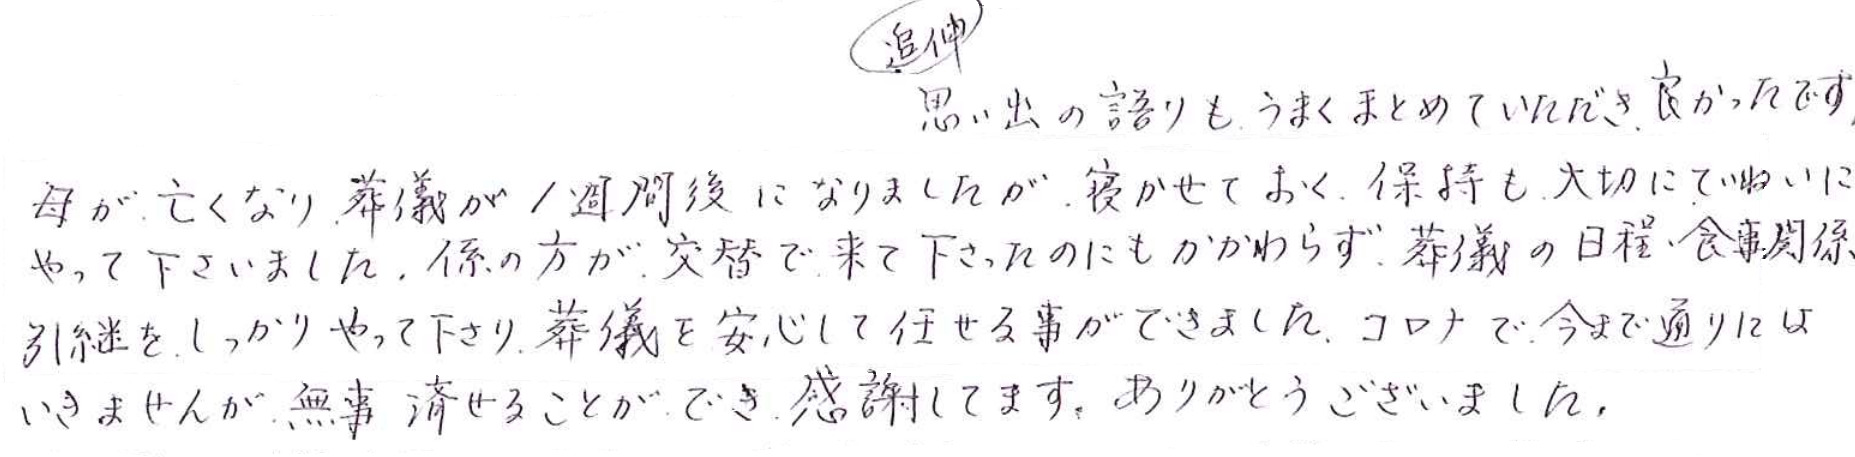 追伸
思い出の語りも、うまくまとめていただき、良かったです。
母が、亡くなり、葬儀が1週間後になりましたが、寝かせておく、保持も、大切にていねいに
やって下さいました。係の方が、交替で、来て下さったのにもかかわらず、葬儀の日程、食事関係、
引継を、しっかりやって下さり、葬儀を安心して任せる事ができました。コロナで、今まで通りには
いきませんが、無事済せることが、でき、感謝してます。ありがとうございました。